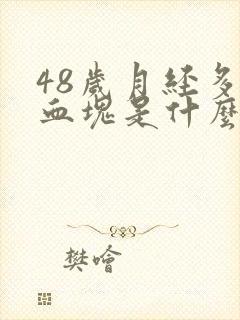 48歲月經多
血塊是什麼
樊噲